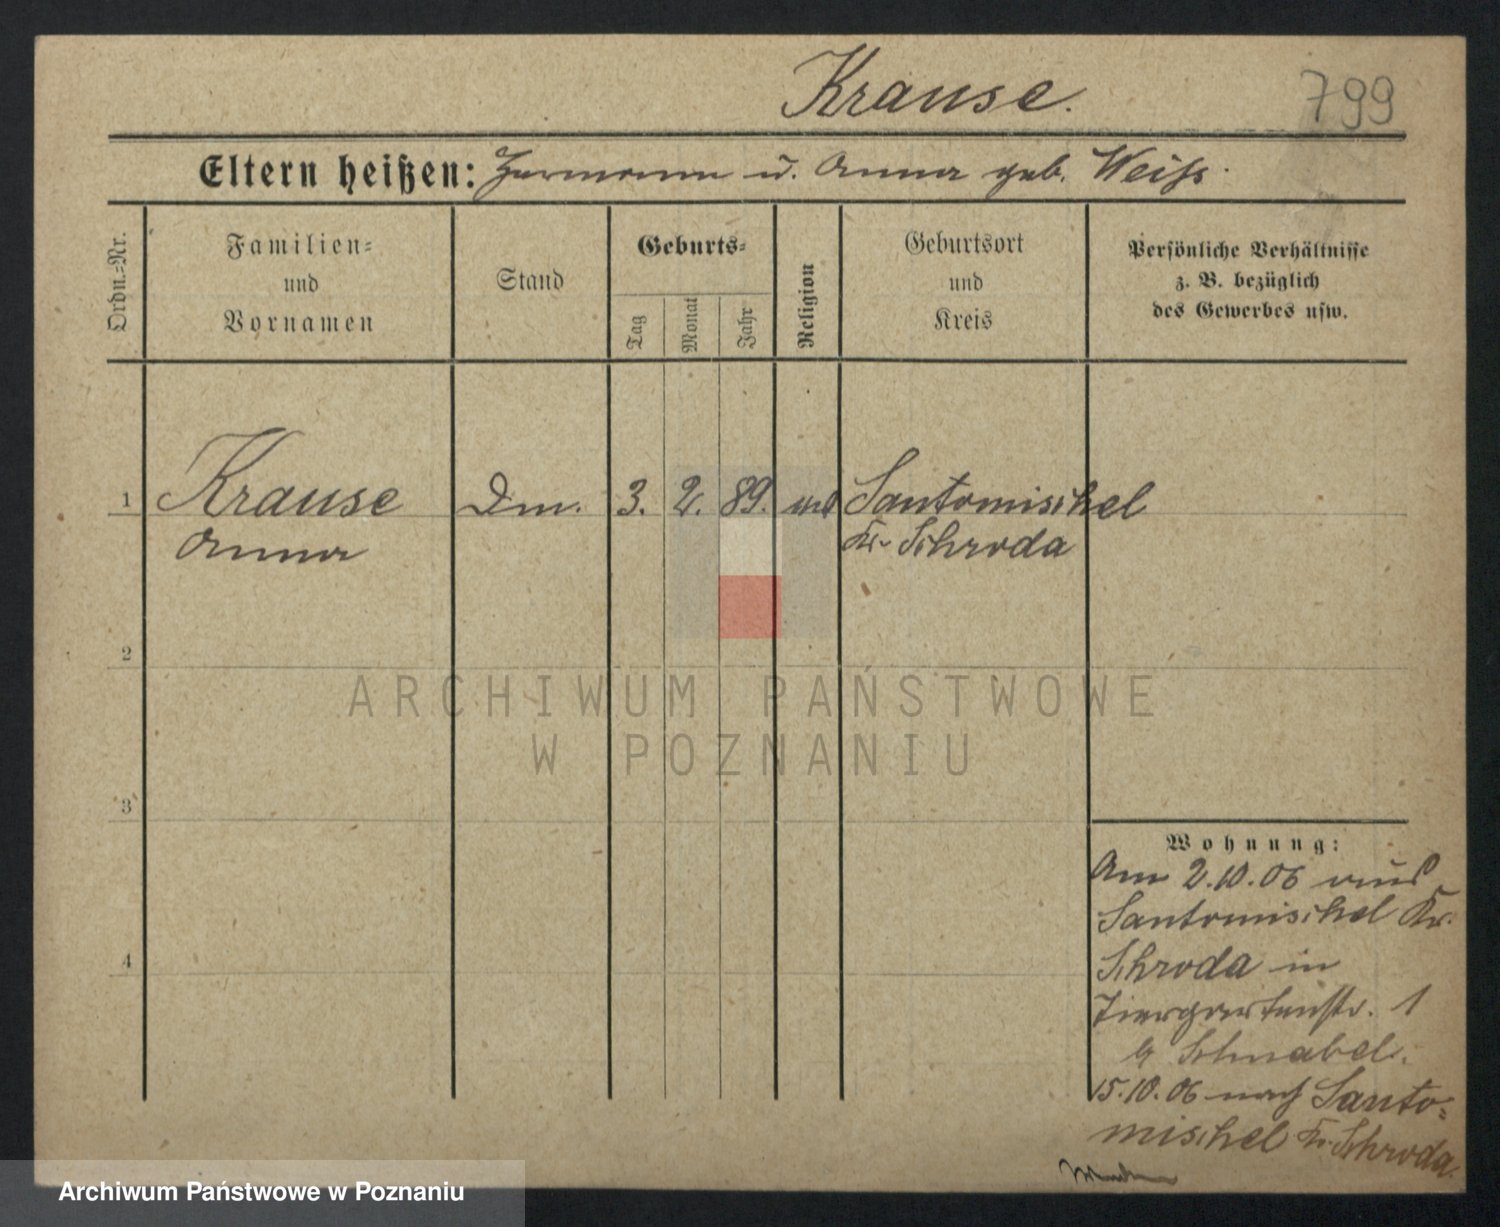 Krause.
799
Eltern heißen: Hermann u. Anna geb. Weiss.
Ordn.=Nr.
Familien=
und
Vornamen
Stand
Geburts=
Tag
Monat
Jahr
Religion
Geburtsort
und
Kreis
Persönliche Verhältnisse
z. B. bezüglich
des Gewerbes usw.
1 Krause Dm. 3. 2. 89. Santomischel
Anna Kr. Schroda
2
ARCHIWUM PAŃSTWOWE
W POZNANIU
3
Wohnung:
Am 2.10.06 aus
Santomischel Kr.
4 Schroda in
Tiergartenstr. 1
b Schnabel.
15.10.06 nach Santo=
mischel Kr. Schroda.
Archiwum Państwowe w Poznaniu